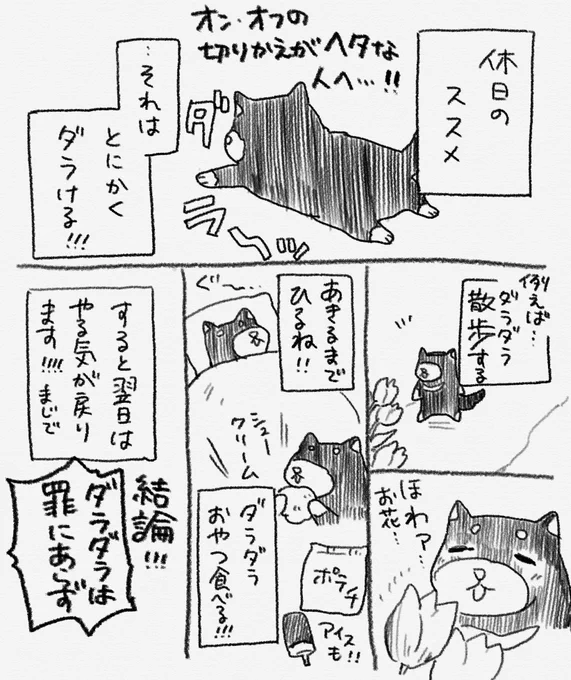 休日の
ススメ
オン・オフの
切りかえがヘタな
人へ…!!
…それは
とにかく
ダラける!!!
ダラッ
例えば…
ダラダラ
散歩する
ほわァ…
お花…
あきるまで
ひるね!!
ぐ〜…
シュー
クリーム
ダラダラ
おやつ食べる!!!
ポテチ
アイス
も!!
すると翌日は
やる気が戻り
ます!!!! まじで
結論!!!
ダラダラは
罪にあらず